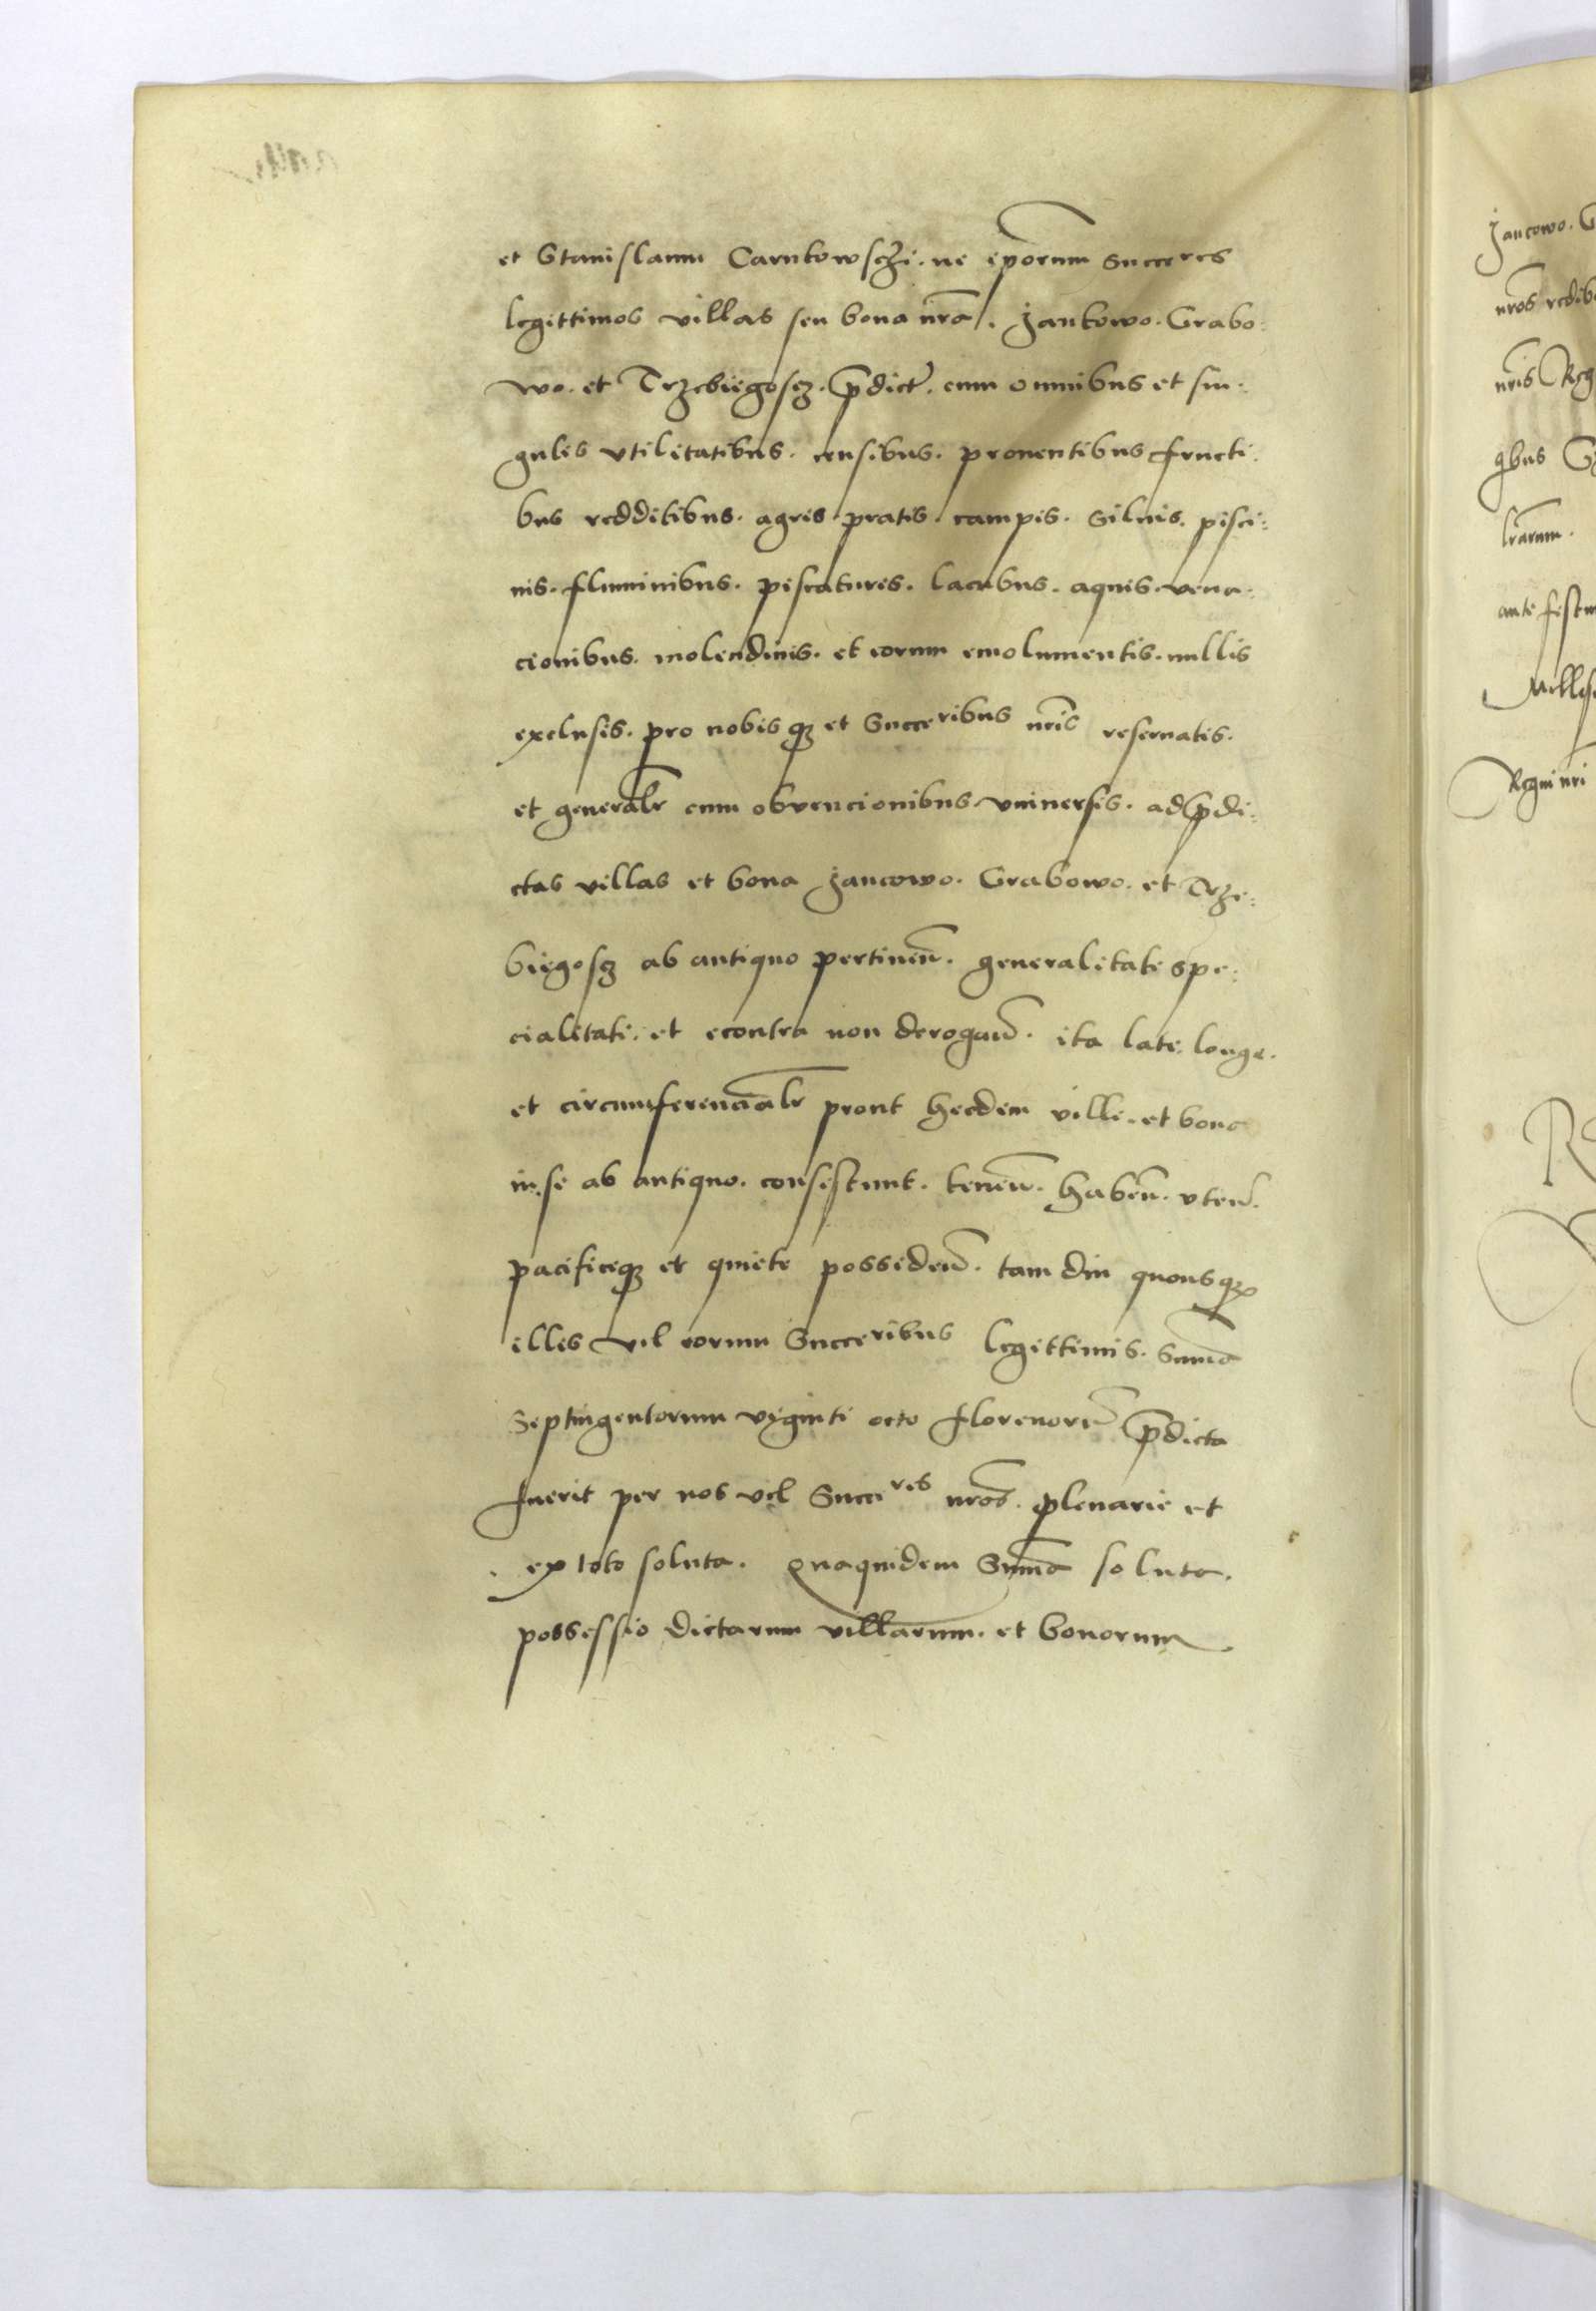 et Stanislaum Carnkowsczi. ac ip̄orum Succeres
legittimos villas seu bona nr̄a. Jankowo. Grabo:
wo. et Trzebiegosz. p̄dict. cum omnibus et sin:
gulis vtilitatibus. censibus. prouentibus fructi:
bus redditibus. agris. pratis. campis. Siluis. pisci:
nis. fluminibus. piscaturis. lacubus. aquis. vena:
cionibus. molendinis. et eorum emolumentis. nullis
exclusis. pro nobisqȝ et Succeribus nr̄is reseruatis.
et generalr̄ cum obuencionibus vniuersis. ad p̄di:
ctas villas et bona Jancowo. Grabowo. et Trze:
biegosz ab antiquo pertinen̄. generalitate spe:
cialitati. et econtra non derogan̄. ita late. longe.
et circumferencialr̄ prout hecdem ville. et bona
in se ab antiquo. consistunt. tenen̄. haben̄. vten̄.
pacificeqȝ et quiete possiden̄. tam diu quousqȝ
illis vel eorum Succeribus legittimis. Sum̄a
Septingentorum viginti octo florenorū p̄dicta
fuerit per nos vel Succeres nr̄os. plenarie et
ex toto soluta. Quaquidem Sum̄a soluta.
possessio dictarum villarum. et bonorum
Jancowo. G
nr̄os redib
nr̄is Reg
qbus G
lr̄arum.
ante festu
Millesi
Regni nr̄i
R